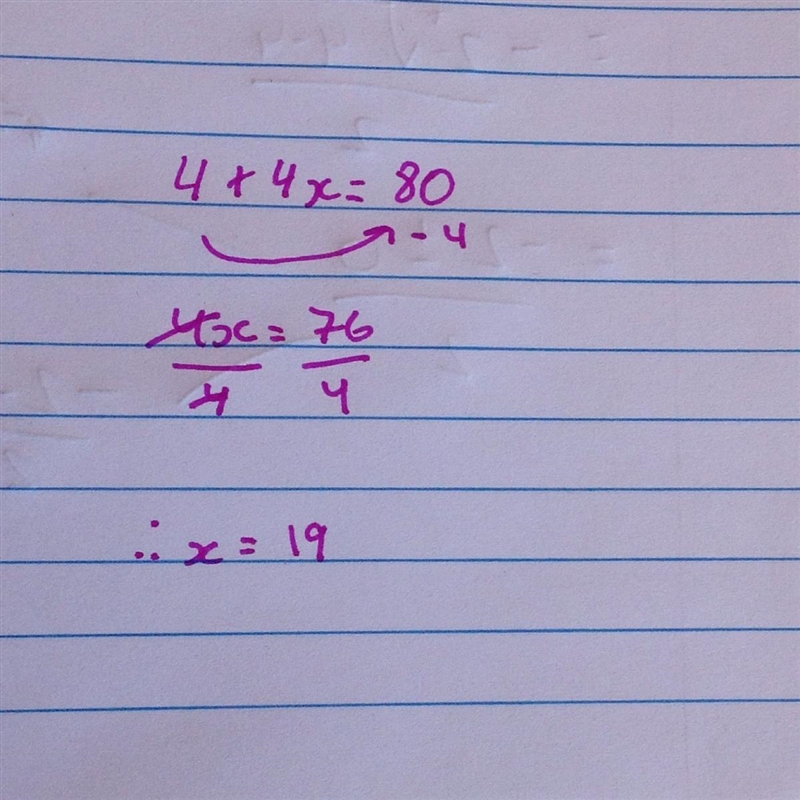 4 + 4x = 80
- 4
4x = 76
4 4
∴ x = 19